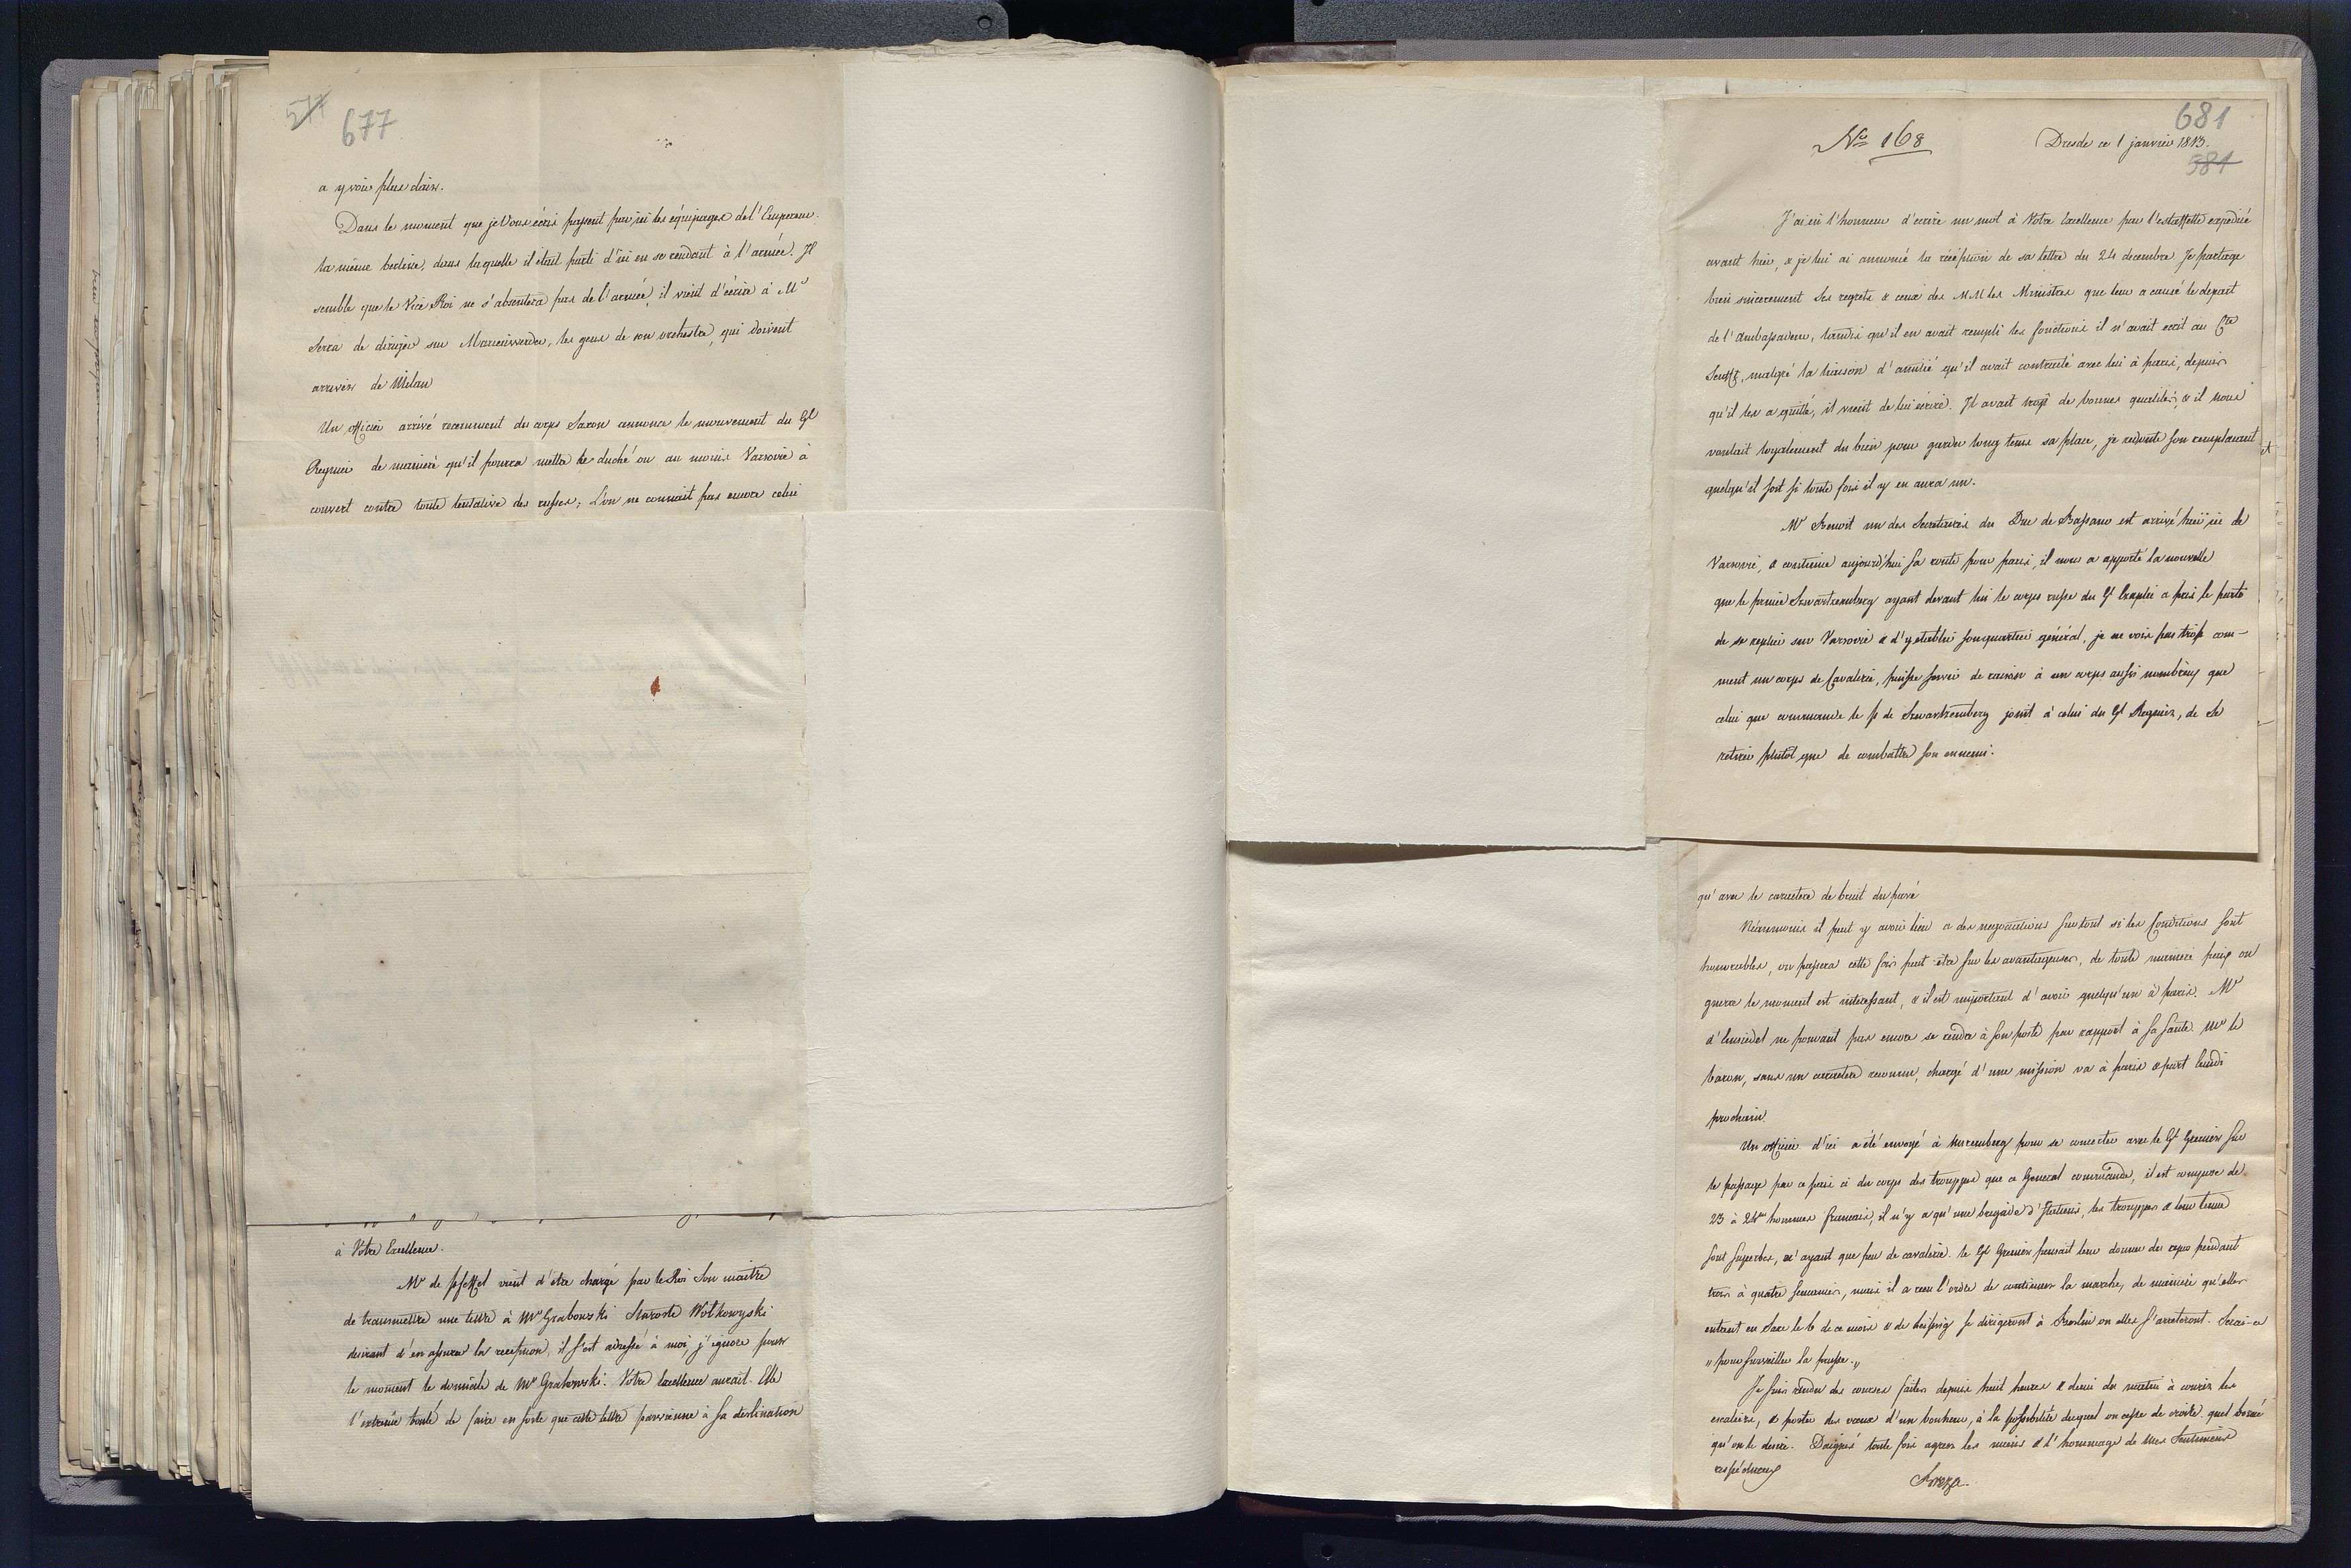 577
677
a y voir plus clair.
Dans le moment que je Vous écris passent par ici les équipages de l'Empereur.
la même berline, dans laquelle il était parti d'ici en se rendant à l'armée. Il
semble que le Vice Roi ne s'absentera pas de l'armée, il vient d'écrire à Mr
Serra de diriger sur Marienwerder, les gens de son orchestre, qui doivent
arriver de Milan
Un officier arrivé recemment du corps Saxon annonce le mouvement du Gl
Regnier de manière qu'il pourra mettre le duché ou au moins Varsovie à
couvert contre toute tentative des russes; L'on ne connait pas encore celui
à Votre Excellence.
Mr de pfeffel vient d'être chargé par le Roi Son maitre
de transmettre une lettre à Mr Grabowski Staroste Wolkowyski
desirant d'en assurer la reception, il s'est adressé à moi, j'ignore pour
le moment le domicile de Mr Grabowski. Votre Excellence aurait Elle
l'extreme bonté de faire en sorte que cette lettre parvienne à sa destination
681
No 168
Dresde ce 1 janvier 1813.
581
J'ai eû l'honneur d'ecrire un mot à Votre Excellence par l'estaffette expediée
avant hier, & je lui ai annoncé la réception de sa lettre du 24 decembre. Je partage
bien sincerement Ses regrets & ceux des MM les Ministres que leur a causé le depart
de l'Ambassadeur, tandis qu'il en avait rempli les fonctions il n'avait ecrit au Cte
Senfft, malgré la liaison d'amitié qu'il avait contractée avec lui à paris, depuis
qu'il les a quitté, il vient de lui écrire. Il avait trop de bonnes qualités, & il nous
voulait loyalement du bien pour garder long tems sa place, je redoute son remplacant
quelqu'il soit si toute fois il y en aura un.
Mr Benoit un des Secretaires du Duc de Bassano est arrivé hier ici de
Varsovie, & continue aujourd'hui sa route pour paris, il nous a apporté la nouvelle
que le prince Szwartzemberg ayant devant lui le corps russe du Gl Czaplic a pris le parti
de se replier sur Varsovie & d'y etablir son quartier général, je ne vois pas trop com-
ment un corps de Cavalerie, puisse servir de raison à un corps aussi nombreux que
celui que commande le p de Szwartzemberg joint à celui du Gl Regnier, de Se
retirer plutôt que de combattre son ennemi.
qu'avec le caractere de bruit du pavé
Néanmoins il peut y avoir lieu a des negociations surtout si les Conditions sont
honorables, on passera cette fois peut-être sur les avantageuses, de toute maniere paix ou
guerre le moment est interessant, & il est important d'avoir quelqu'un à paris. Mr
d'Einsiedel ne pouvant pas encore se rendre à son poste par rapport à Sa Santé. Mr le
baron, sans un caractere reconnu, chargé d'une mission va à paris & part lundi
prochain.
Un officier d'ici a été envoyé à Nuremberg pour se concerter avec le Gl Grenier sur
le passage par ce païs ci du corps des trouppes que ce General commande, il est composé de
23 à 24m hommes francais, il n'y a qu'une brigade d'Italiens, les trouppes & leur tenue
sont superbes, n'ayant que peu de cavalerie. le Gl Grenier pensait leur donner du repos pendant
trois à quatre semaines, mais il a recu l'ordre de continuer la marche, de manière qu'elles
entrent en Saxe le 6 de ce mois & de Leipsig se dirigeront à Berlin ou elles s'arreteront. Serai-ce
" pour surveiller la prusse. "
Je suis rendu des courses faites depuis huit heures & demi du matin à courir les
escaliers, & porter des voeux d'un bonheur, à la possibilité duquel on cesse de croire quel borné
qu'on le desire. Daignés toute fois agreer les miens & l'hommage de mes Sentimens
respéctueux
Breza.